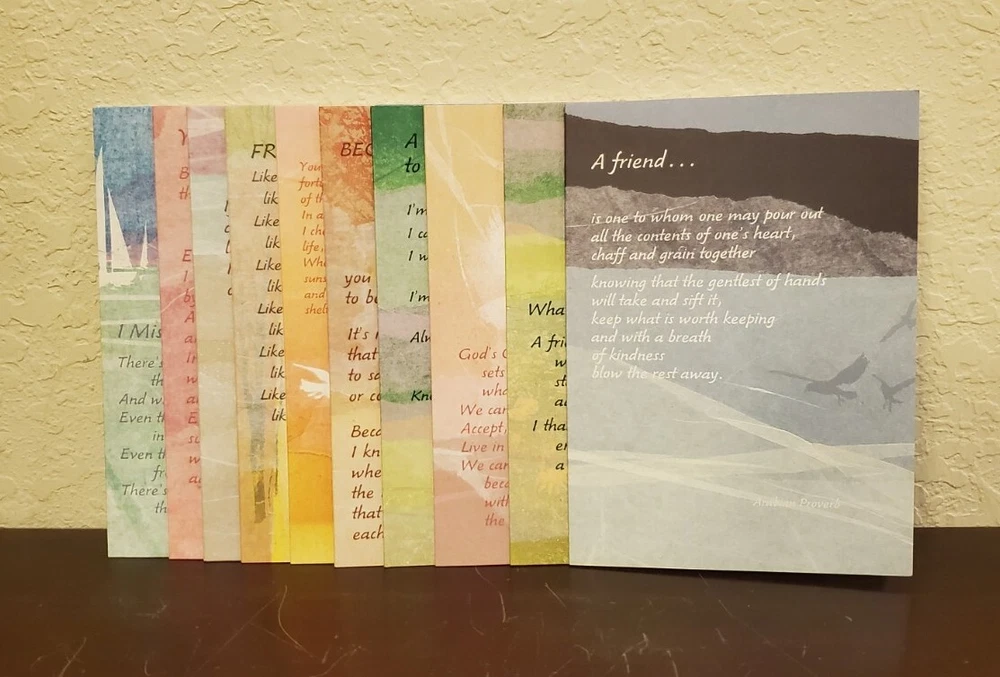 I Mis
There's
th
And w
Even th
in
Even th
fr
There's
th
Y
B
th
E
I
by
A
a
In
w
a
E
su
w
a
FR
Like
lik
Like
lik
Like
lik
Like
lik
Like
lik
Like
lik
You
fort
of th
In a
I ch
life,
Whe
suns
and
shel
BEC
you
to be
It's r
that
to sa
or co
Beca
I kn
whe
the
that
each
A
to
I'm
I ca
I w
I'm
Alw
Kno
God's G
sets
who
We can
Accept,
Live in
We can
beca
with
the
Wha
A frie
w
st
a
I tha
en
a
A friend...
is one to whom one may pour out
all the contents of one's heart,
chaff and grain together
knowing that the gentlest of hands
will take and sift it,
keep what is worth keeping
and with a breath
of kindness
blow the rest away.
Arabian Proverb